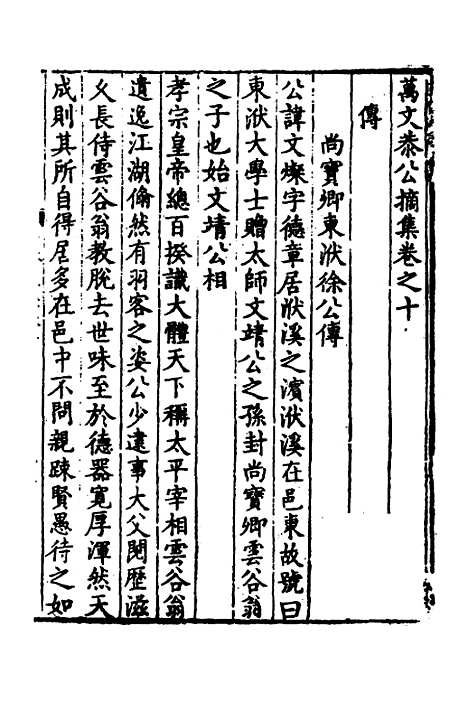 萬文恭公摘集卷之十
傳
尚寶卿東洑徐公傳
公諱文燦字德章居洑溪之濱洑溪在邑東故號曰
東洑大學士贈太師文靖公之孫封尚寶卿雲谷翁
之子也始文靖公相
孝宗皇帝總百揆識大體天下稱太平宰相雲谷翁
遺逸江湖翛然有羽客之姿公少逮事大父閱歷滋
久長侍雲谷翁教脫去世味至於德器寬厚渾然天
成則其所自得居多在邑中不問親踈賢愚待之如